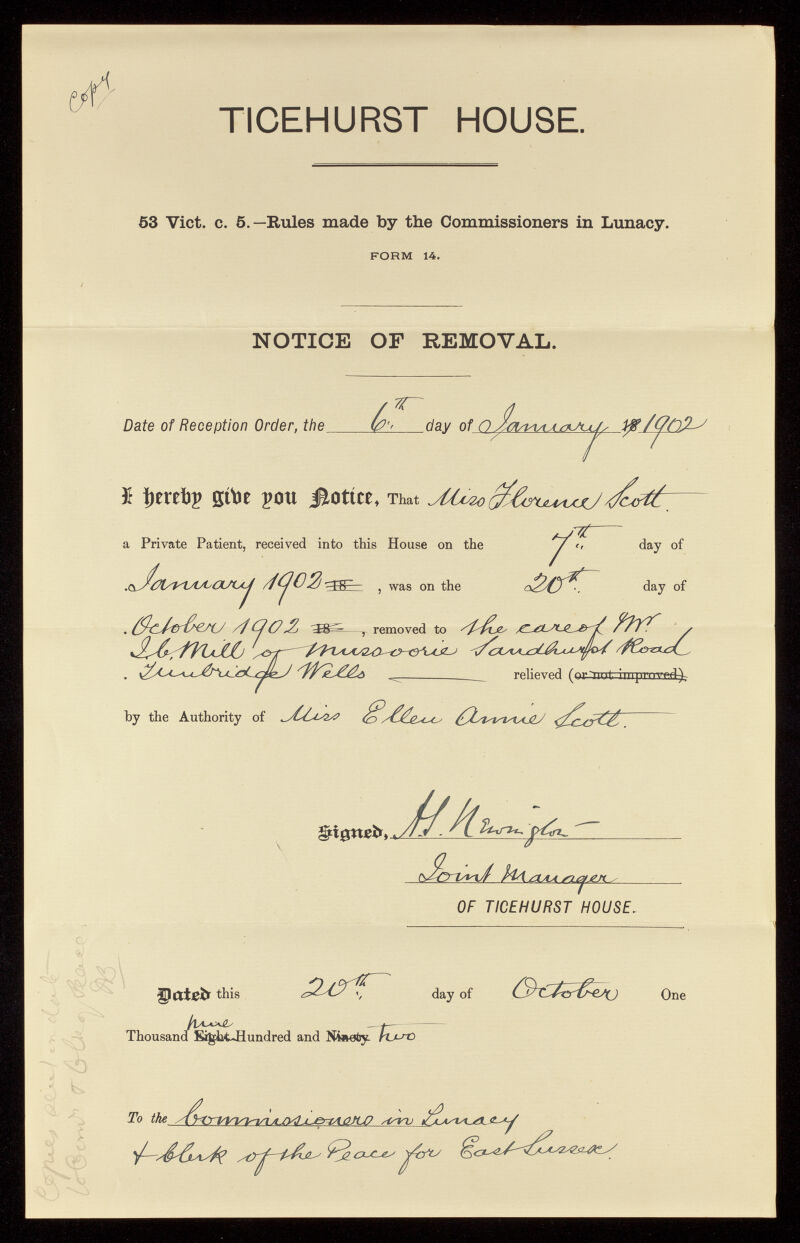 Copy
TICEHURST HOUSE.
53 Vict. c. 5.—Rules made by the Commissioners in Lunacy.
FORM 14.
NOTICE OF REMOVAL.
Date of Reception Order, the 6th day of January 18 1902
I hereby give you Notice, That Miss Florence Scott
a Private Patient, received into this House on the 7th day of
January 1902 18 , was on the 20th day of
October 1902 18 , removed to the care of Mr
J.C. Mill of Mussoorie Sandhurst Road
Tunbridge Wells relieved (or not improved),
by the Authority of Miss Ellen Annie Scott.
Signed, H.S. Newington
Joint Manager
OF TICEHURST HOUSE.
Dated this 20th day of October One
nine
Thousand Eight Hundred and Ninety two
To the Commissioners in Lunacy
& Clerk of the Peace for East Sussex.
Copies sent on date
to Comrs & Clk of Peace.